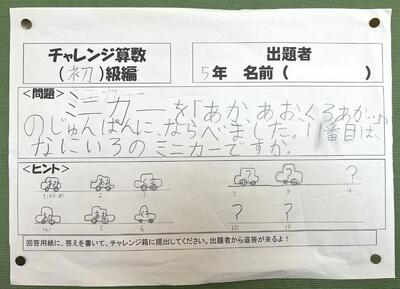 チャレンジ算数
(初)級編
出題者
5年 名前 ( )
<問題>
ミニカーを「あか あお くろ あか…」
のじゅんばんに、ならべました。11番目は、
なにいろのミニカーですか。
<ヒント>
あか あお くろ ? ? ?
1ばんめ 2 3 7 8 9
あか あお くろ ? ?
4 5 6 10 11
回答用紙に、答えを書いて、チャレンジ箱に提出してください。出題者から返答が来るよ!